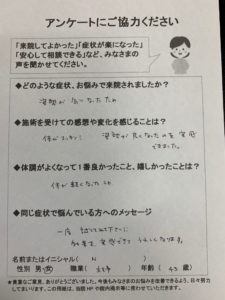 アンケートにご協力ください
「来院してよかった」「症状が楽になった」
「安心して相談できる」など、みなさまの
声を聞かせてください。
◆どのような症状、お悩みで来院されましたか？
姿勢が 気になったため
◆施術を受けての感想や変化を感じることは？
体がスッキリ 姿勢が 良くなったのを 実感
できました。
◆体調がよくなって１番良かったこと、嬉しかったことは？
体が軽くなった
◆同じ症状で悩んでいる方へのメッセージ
一度 試してみて下さい
実感できて うれしくなります。
名前またはイニシャル（ N ）
性別 男・女 職業（ ） 年齢（ 43 歳）
★貴重なご意見、ありがとうございました。今後もみなさまのお悩みを改善できるよう、日々努力
してまいります。この用紙は、当院 HP や院内掲示等に使わせていただきます。